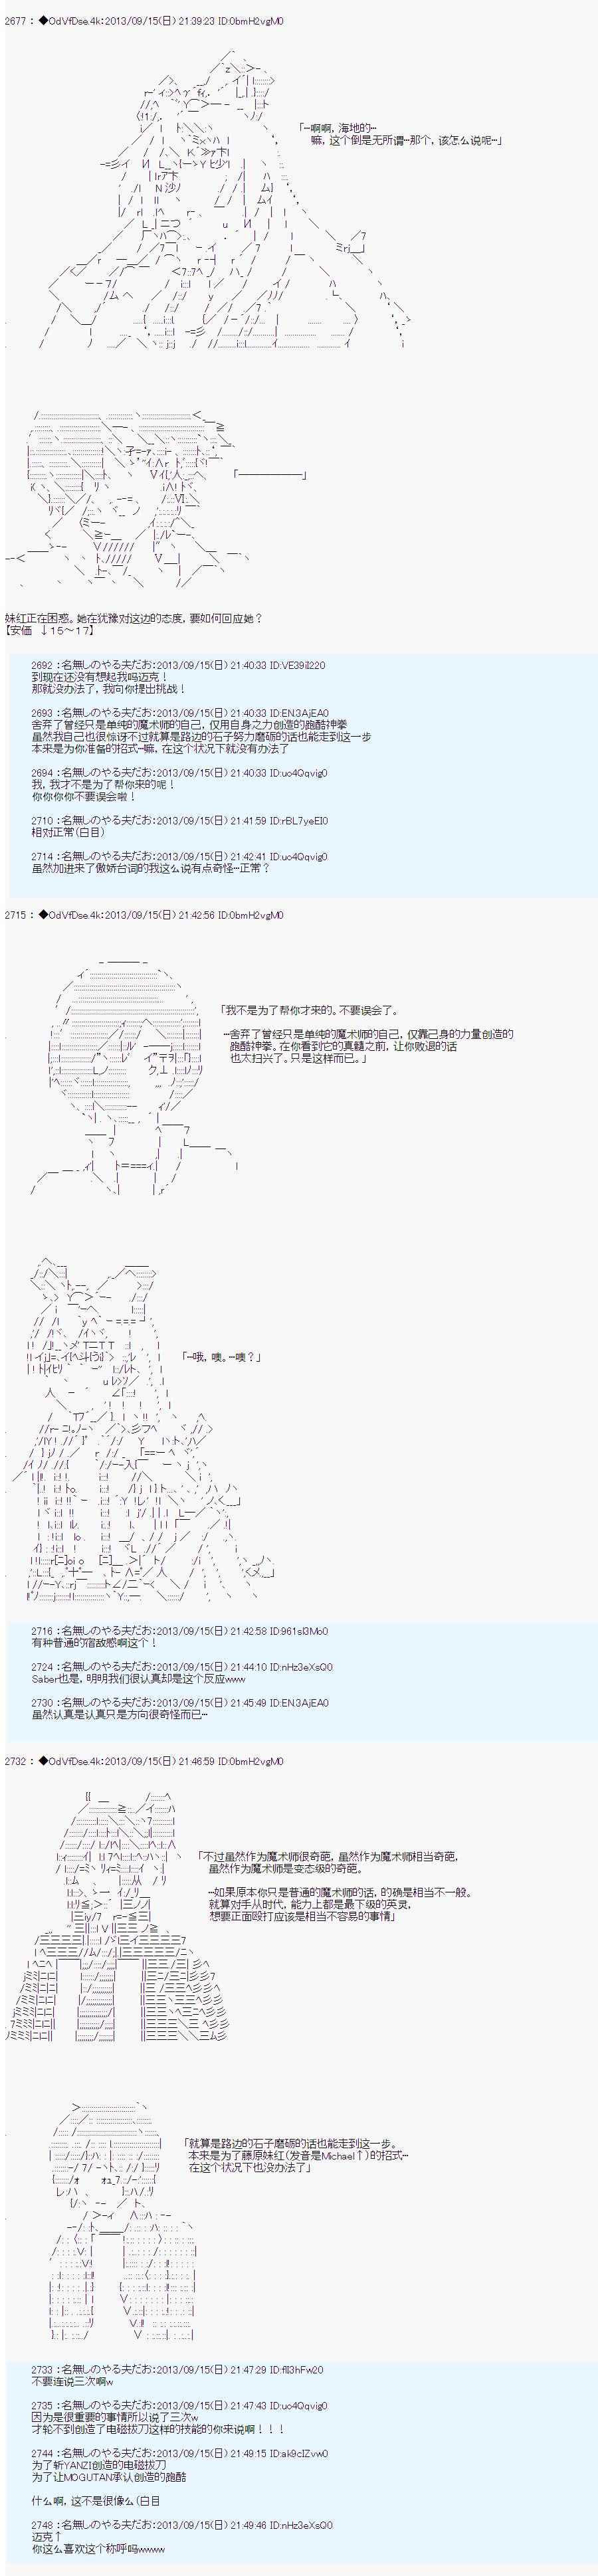 2677 : ◆OdVfDse.4k:2013/09/15(日) 21:39:23 ID:0bmH2vgM0
「…啊啊,海地的…
嘛,这个倒是无所谓…那个,该怎么说呢…」
「──────」
妹红正在困惑。她在犹豫对这边的态度,要如何回应她?
【安価 ↓15~17】
2692 :名無しのやる夫だお:2013/09/15(日) 21:40:33 ID:VE39il220
到现在还没有想起我吗迈克!
那就没办法了,我向你提出挑战!
2693 :名無しのやる夫だお:2013/09/15(日) 21:40:33 ID:EN.3AjEA0
舍弃了曾经只是单纯的魔术师的自己,仅用自身之力创造的跑酷神拳
虽然我自己也很惊讶不过就算是路边的石子努力磨砺的话也能走到这一步
本来是为你准备的招式…嘛,在这个状况下就没有办法了
2694 :名無しのやる夫だお:2013/09/15(日) 21:40:33 ID:uo4Qqvig0
我,我才不是为了帮你来的呢!
你你你你不要误会啦!
2710 :名無しのやる夫だお:2013/09/15(日) 21:41:59 ID:rBL7yeEI0
相对正常(白目)
2714 :名無しのやる夫だお:2013/09/15(日) 21:42:41 ID:uo4Qqvig0
虽然加进来了傲娇台词的我这么说有点奇怪…正常?
2715 : ◆OdVfDse.4k:2013/09/15(日) 21:42:56 ID:0bmH2vgM0
「我不是为了帮你才来的。不要误会了。
…舍弃了曾经只是单纯的魔术师的自己,仅靠己身的力量创造的
跑酷神拳。在你看到它的真髓之前,让你败退的话
也太扫兴了。只是这样而已。」
「…哦,噢。…噢?」
2716 :名無しのやる夫だお:2013/09/15(日) 21:42:58 ID:961sI3Mo0
有种普通的宿敌感啊这个!
2724 :名無しのやる夫だお:2013/09/15(日) 21:44:10 ID:nHz3eXsQ0
Saber也是,明明我们很认真却是这个反应www
2730 :名無しのやる夫だお:2013/09/15(日) 21:45:49 ID:EN.3AjEA0
虽然认真是认真只是方向很奇怪而已…
2732 : ◆OdVfDse.4k:2013/09/15(日) 21:46:59 ID:0bmH2vgM0
「不过虽然作为魔术师很奇葩,虽然作为魔术师相当奇葩,
虽然作为魔术师是变态级的奇葩。
…如果原本你只是普通的魔术师的话,的确是相当不一般。
就算对手从时代,能力上都是最下级的英灵,
想要正面殴打应该是相当不容易的事情」
「就算是路边的石子磨砺的话也能走到这一步。
本来是为了藤原妹红(发音是Michael↑)的招式…
在这个状况下也没办法了」
2733 :名無しのやる夫だお:2013/09/15(日) 21:47:29 ID:fIl3hFw20
不要连说三次啊w
2735 :名無しのやる夫だお:2013/09/15(日) 21:47:43 ID:uo4Qqvig0
因为是很重要的事情所以说了三次w
才轮不到创造了电磁拔刀这样的技能的你来说啊!!!
2744 :名無しのやる夫だお:2013/09/15(日) 21:49:15 ID:ak9cIZvw0
为了斩YANZI创造的电磁拔刀
为了让MOGUTAN承认创造的跑酷
什么啊,这不是很像么(白目
2748 :名無しのやる夫だお:2013/09/15(日) 21:49:46 ID:nHz3eXsQ0
迈克↑
你这么喜欢这个称呼吗wwww